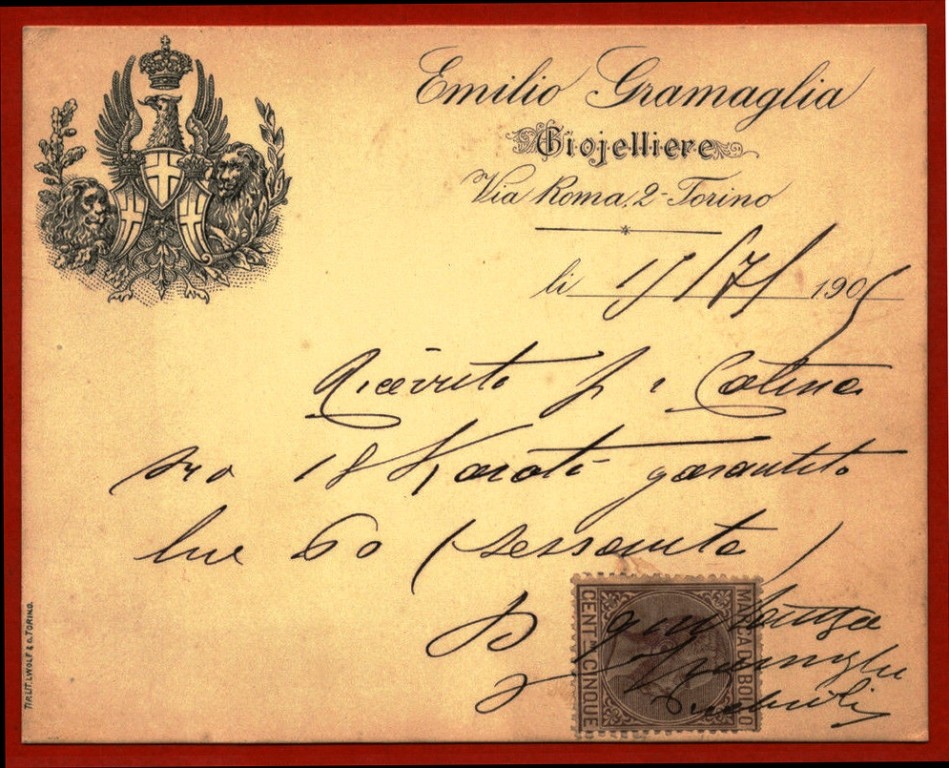 Emilio Gramaglia
Giojelliere
Via Roma, 2 - Torino
li 15/7/1905
Ricevuto p 1 Catina
oro 18 Karati garantito
lire 60 (sessanta)
MARCA DA BOLLO
CENT.MI CINQUE
TIP. LIT. I. WOLF & C. TORINO.